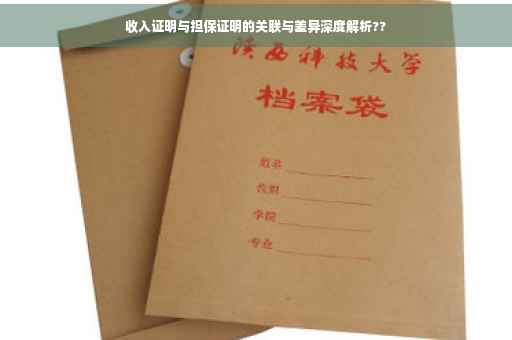 收入证明与担保证明的关联与差异深度解析??
陕西科技大学
档案袋
姓名
学院
专业